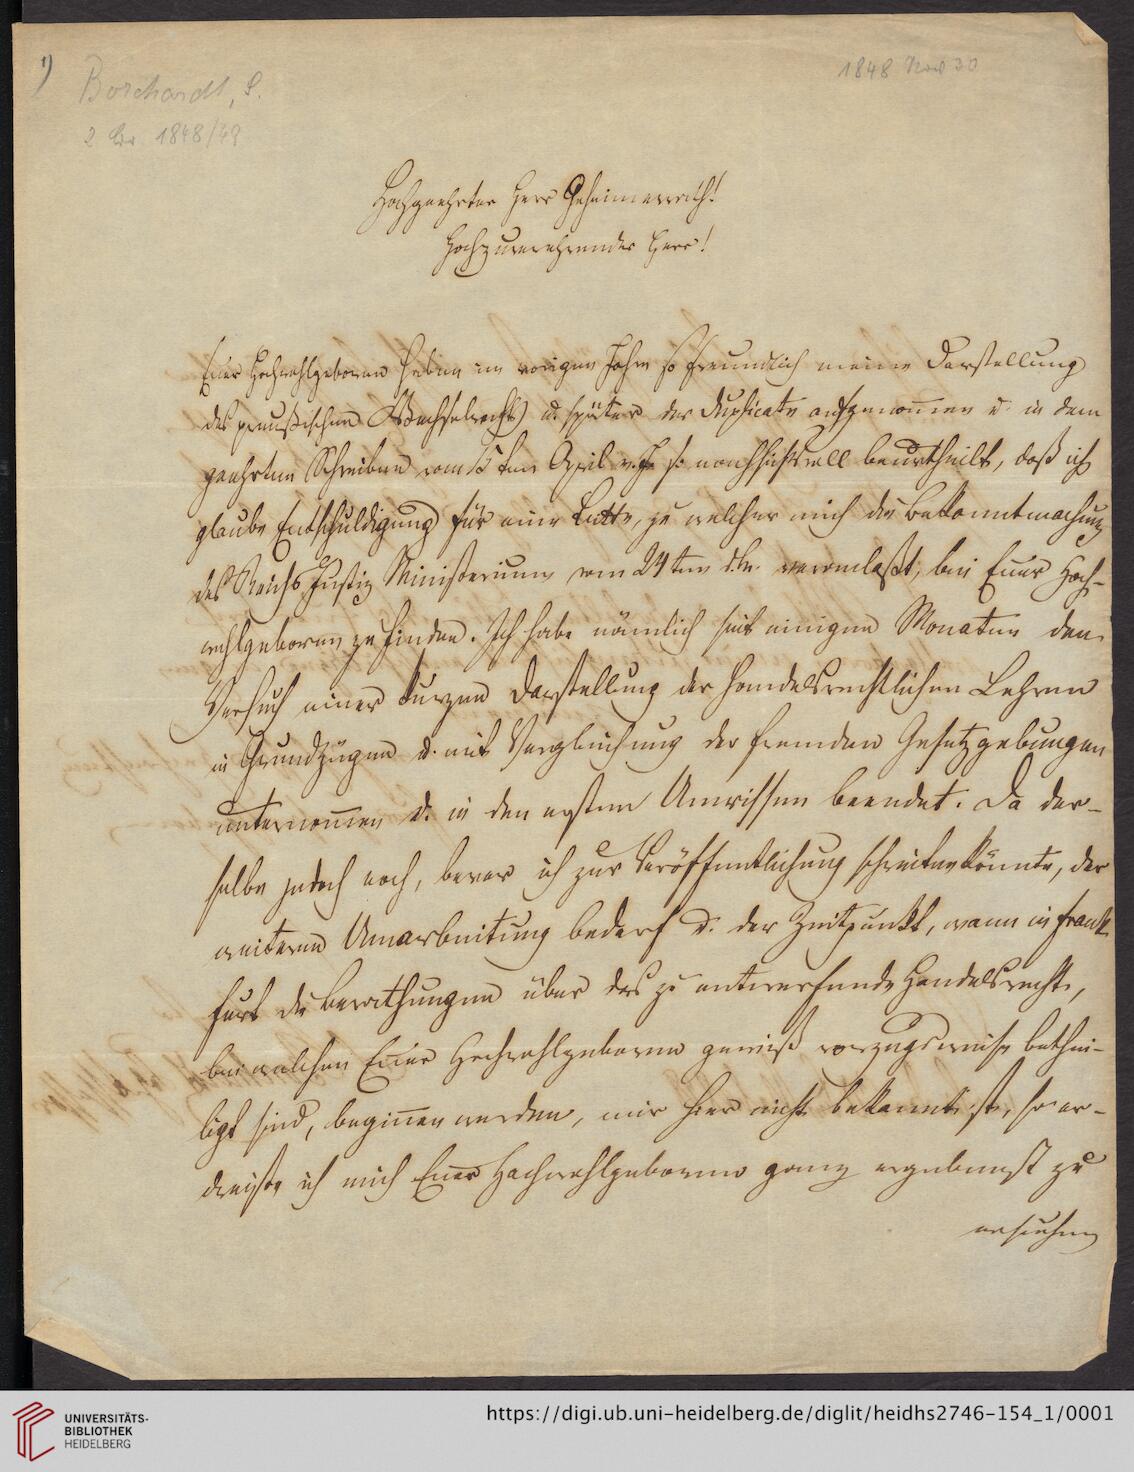 1)
Borchardt, S.
2 Br. 1848/49
1848 Nov 30
Hochgeehrter Herr Geheimerrath!
Hochzuverehrender Herr!
Euer Hochwohlgeboren haben im vorigen Jahre so freundlich meine Darstellung
des preußischen Wechselrechts u. später der Duplicate aufgenom̄en u. in dem
geehrten Schreiben vom 15ten April v. J. so nachsichtsvoll beurtheilt, daß ich
glaube Entschuldigung für eine Bitte, zu welcher mich die Bekanntmachung
des Reichs Justiz Ministeriums vom 24ten d. M. veranlaßt, bei Euer Hoch-
wohlgeboren zu finden. Ich habe nämlich seit einigen Monaten den
Versuch einer kurzen Darstellung der handelsrechtlichen Lehren
in Grundzügen u. mit Vergleichung der fremden Gesetzgebungen
unternom̄en u. in den ersten Umrissen beendet. Da der-
selbe jedoch noch, bevor ich zur Veröffentlichung schreiten könnte, der
weiteren Umarbeitung bedarf u. der Zeitpunkt, wann in Frank
furt die Berathungen über das zu entwerfende Handelsrecht,
bei welchen Euer Hochwohlgeboren gewiß vorzugsweise bethei-
ligt sind, begin̄en werden, mir hier nicht bekannt ist, so er-
dreiste ich mich Euer Hochwohlgeboren ganz ergebenst zu
ersuchen
UNIVERSITÄTS-
BIBLIOTHEK
HEIDELBERG
https://digi.ub.uni-heidelberg.de/diglit/heidhs2746-154_1/0001